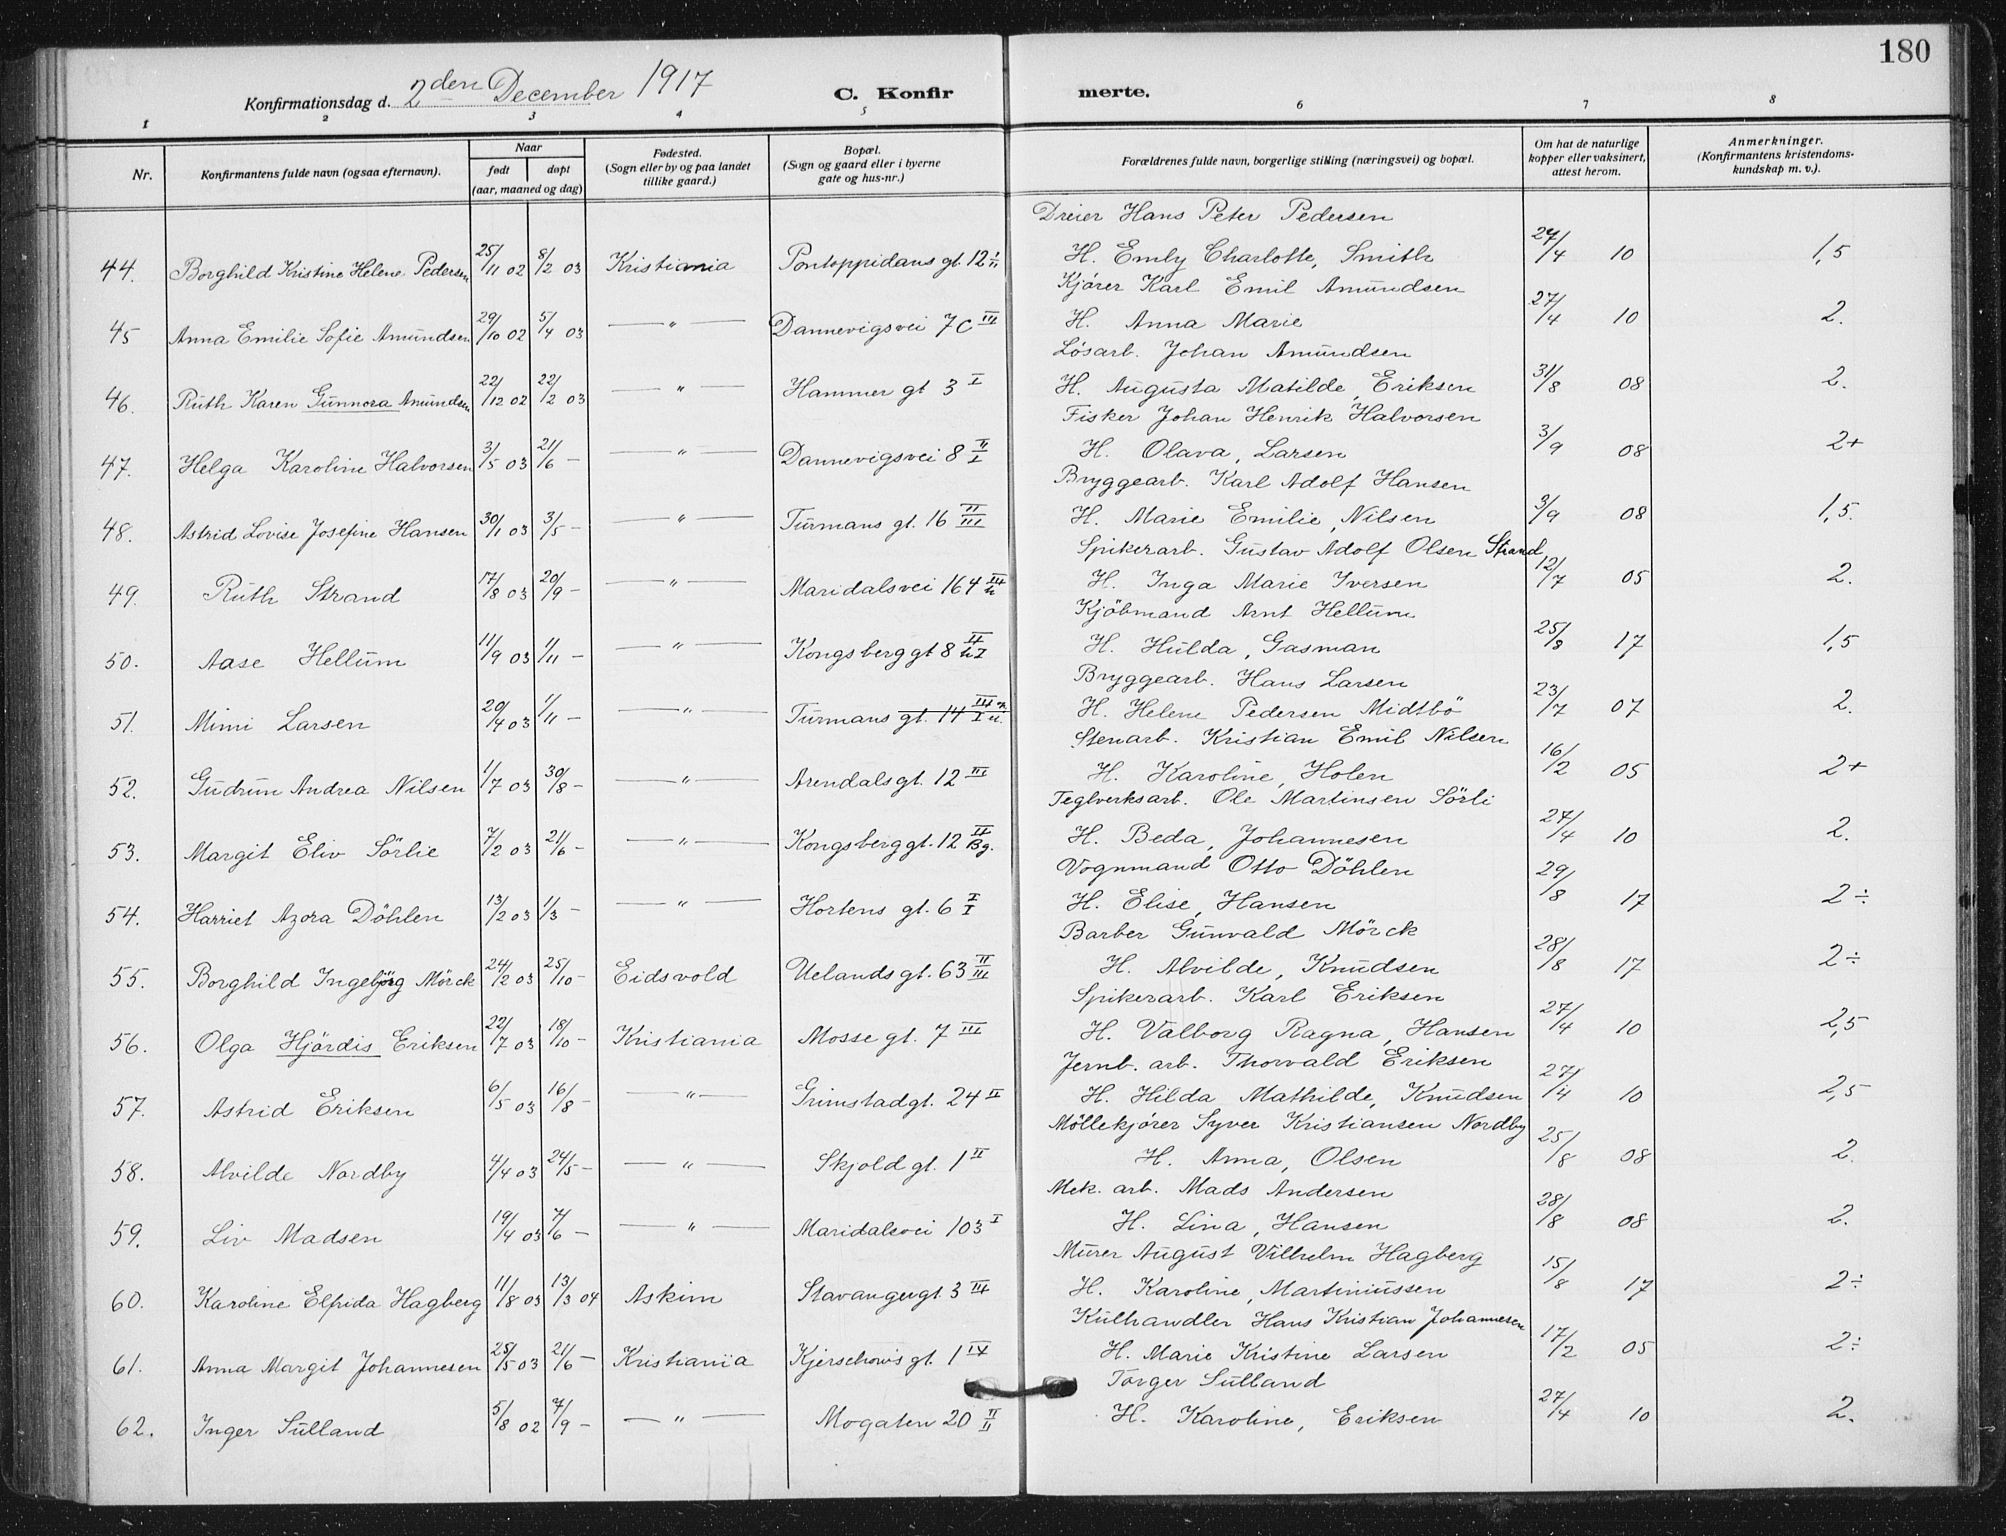 180
Konfirmationsdag d. 2den December 1917 C. Konfir merte.
1 2 3 4 5 6 7 8
Nr. Konfirmantens fulde navn (ogsaa efternavn). Naar født døpt (aar, maaned og dag) Fødested. (Sogn eller by og paa landet tillike gaard.) Bopæl. (Sogn og gaard eller i byerne gate og hus-nr.) Forældrenes fulde navn, borgerlige stilling (næringsvei) og bopæl. Om hat de naturlige kopper eller vaksinert, attest herom. Anmerkninger. (Konfirmantens kristendoms-kundskap m. v.).
Dreier Hans Peter Pedersen
44. Borghild Kristine Helene Pedersen 25/11 02 8/2 03 Kristiania Pontoppidans gt. 12 H. Emly Charlotte, Smith 27/4 10 1,5
Kjører Karl Emil Amundsen
45 Anna Emilie Sofie Amundsen 29/10 02 5/4 03 — " — Dannevigsvei 7c III H. Anna Marie 27/4 10 2.
Løsarb. Johan Amundsen
46. Ruth Karen Gunnora Amundsen 22/12 02 22/2 03 — " — Hammer gt 3 I H. Augusta Matilde, Eriksen 31/8 08 2.
Fisker Johan Henrik Halvorsen
47. Helga Karoline Halvorsen 3/5 03 21/6 — — " — Dannevigsvei 8 II/I H. Olava, Larsen 3/9 08 2+
Bryggearb. Karl Adolf Hansen
48. Astrid Lovise Josefine Hansen 30/1 03 3/5 — — " — Turmans gt. 16 II/III H. Marie Emilie, Nilsen 3/9 08 1,5.
Spikerarb. Gustav Adolf Olsen Strand
49. Ruth Strand 17/8 03 20/9 — — " — Maridalsvei 164 H. Inga Marie Iversen 12/7 05 2.
Kjöbmand Arnt Hellum
50. Aase Hellum 11/9 03 1/11 — — " — Kongsberggt 8 H. Hulda, Gasman 25/8 17 1,5
Bryggearb. Hans Larsen
51. Mimi Larsen 20/4 03 1/11 — — " — Turmans gt. 14 H. Helene Pedersen Midtbö 23/7 07 2.
Stenarb. Kristian Emil Nilsen
52. Gudrun Andrea Nilsen 1/7 03 30/8 — — " — Arendalsgt. 12 III H. Karoline, Holen 16/2 05 2+
Teglverksarb. Ole Martinsen Sörli
53. Margit Eliv Sörlie 7/2 03 21/6 — — " — Kongsberggt. 12 Bg. H. Beda, Johannesen 27/4 10 2.
Vognmand Otto Döhlen
54. Harriet Azora Döhlen 13/2 03 1/3 — — " — Hortens gt. 6 I/I H. Elise, Hansen 29/8 17 2÷
Barber Gunvald Mörck
55. Borghild Ingebjörg Mörck 24/2 03 25/10 — Eidsvold Uelands gt. 63 II/III H. Alvilde, Knudsen 28/8 17 2÷
Spikerarb. Karl Eriksen
56. Olga Hjördis Eriksen 22/7 03 18/10 — Kristiania Mosse gt. 7 III H. Valborg Ragna, Hansen 27/4 10 2,5
Jernb. arb. Thorvald Eriksen
57. Astrid Eriksen 6/5 03 16/8 — — " — Grimstadgt. 24 II H. Hilda Mathilde, Knudsen 27/4 10 2,5
Möllekjörer Syver Kristiansen Nordby
58. Alvilde Nordby 4/4 03 24/5 — — " — Skjold gt. 1 II H. Anna, Olsen 25/8 08 2.
Mek. arb. Mads Andersen
59. Liv Madsen 19/4 03 7/6 — — " — Maridalsvei 103 I H. Lina, Hansen 28/8 08 2.
Murer August Vilhelm Hagberg
60. Karoline Elfrida Hagberg 11/8 03 13/3 04 Askim Stavangergt. 3 H. Karoline, Martiniussen 15/8 17 2÷
Kulhandler Hans Kristian Johannesen
61. Anna Margit Johannesen 25/5 03 21/6 — Kristiania Kjerschows gt. 1 H. Marie Kristine Larsen 17/2 05 2÷
Torger Sulland
62. Inger Sulland 5/8 02 7/9 — — " — Mogaten 20 II/II H. Karoline, Eriksen 27/4 10 2.